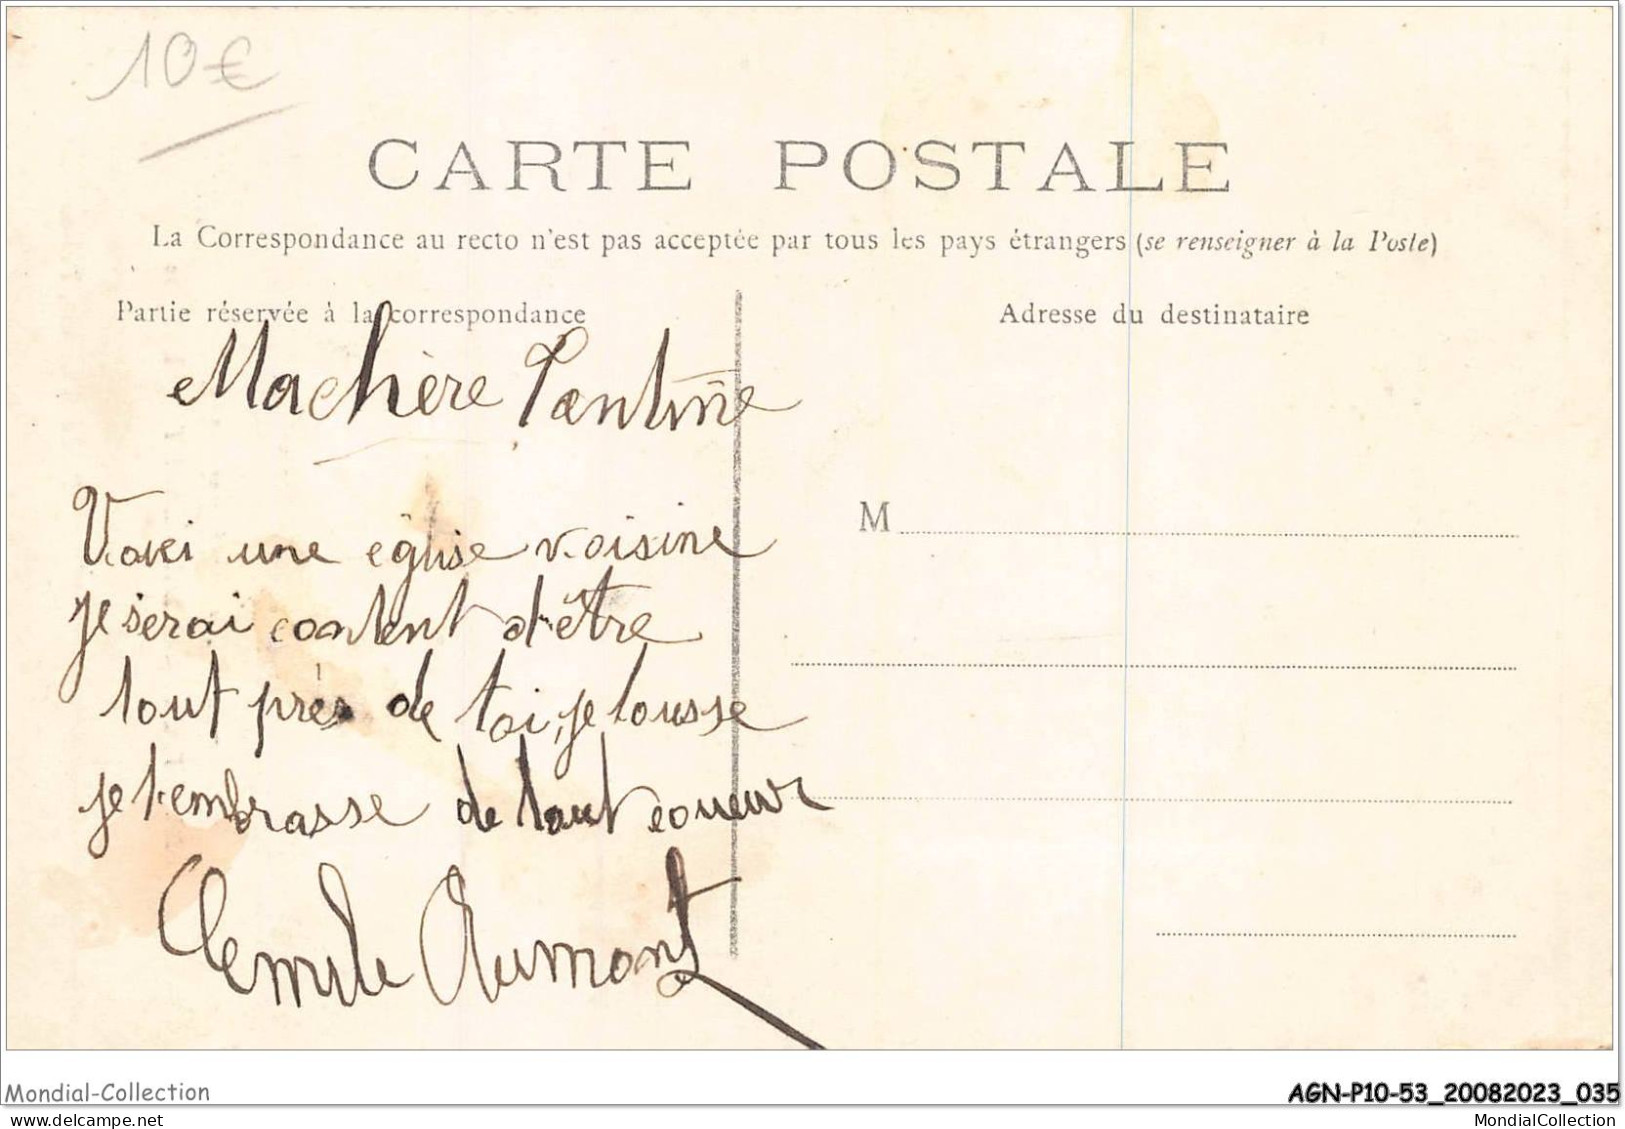 10€
CARTE POSTALE
La Correspondance au recto n'est pas acceptée par tous les pays étrangers (se renseigner à la Poste)
Partie réservée à la correspondance
Adresse du destinataire
Machère
Voici une église voisine
M
je serai content d'être
tout près de toi, je tousse
je t'embrasse de tout coueur
Aumont
Mondial-Collection
AGN-P10-53_20082023_035
MondialCollection
delcampe.net